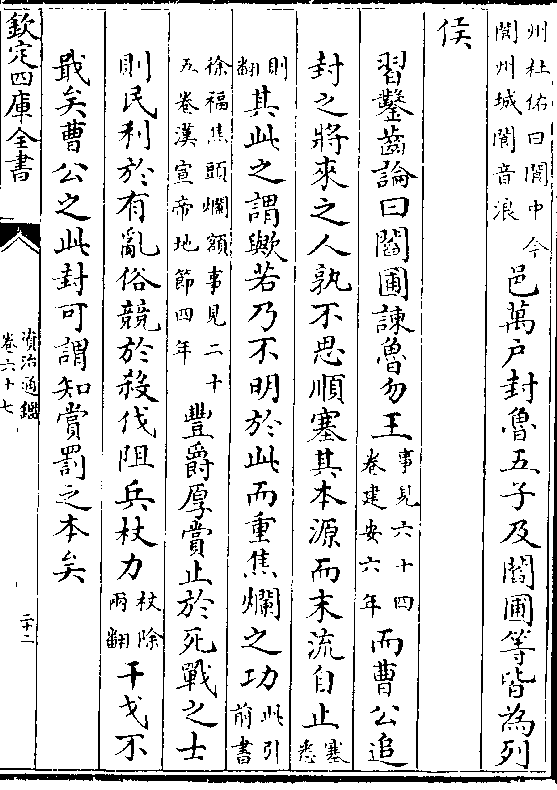 州杜佑曰閬中今
閬州城閬音浪
邑萬户封魯五子及閻圃等皆為列
侯
習鑿齒論曰閻圃諫魯勿王
事見六十四
卷建安六年
而曹公追
封之將來之人孰不思順塞其本源而末流自止
塞
悉
則
翻
其此之謂歟若乃不明於此而重焦爛之功
此引
前書
徐福焦頭爛額事見二十
五卷漢宣帝地節四年
豐爵厚賞止於死戰之士
則民利於有亂俗競於殺伐阻兵杖力
杖除
兩翻
干戈不
戢矣曹公之此封可謂知賞罰之本矣
欽定四庫全書
資治通鑑
卷六十七
二十二